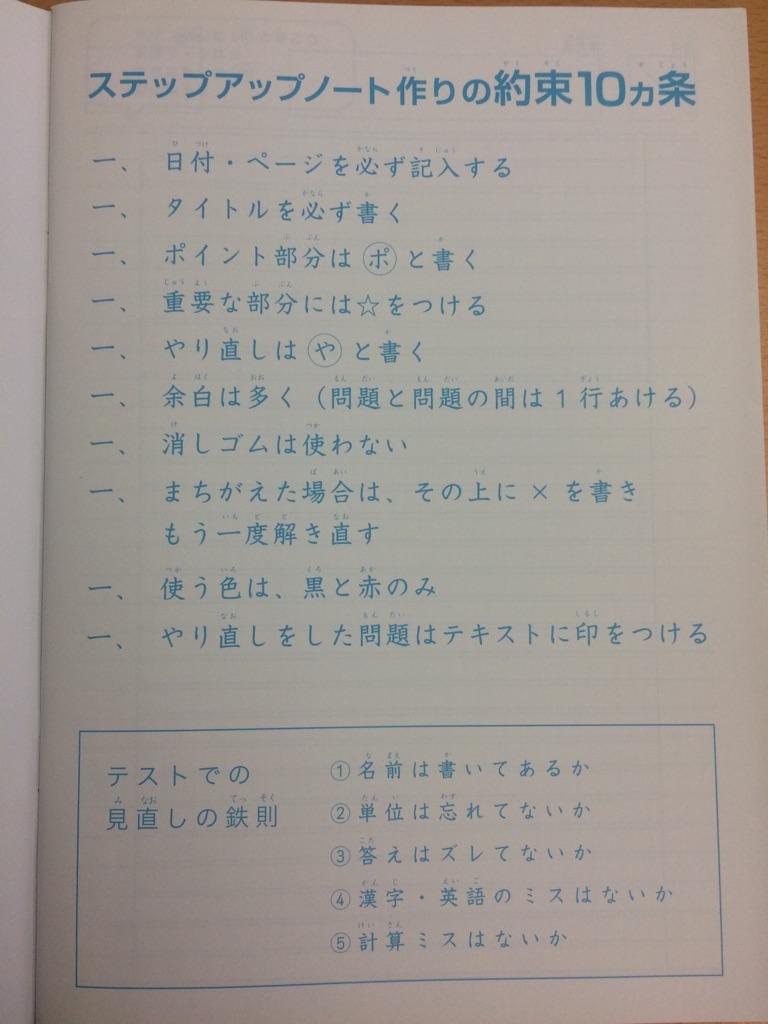 ステップアップノート作りの約束10カ条
一、日付・ページを必ず記入する
一、タイトルを必ず書く
一、ポイント部分は㋭と書く
一、重要な部分には☆をつける
一、やり直しは(や)と書く
一、余白は多く（問題と問題の間は1行あける）
一、消しゴムは使わない
一、まちがえた場合は、その上に×を書き
もう一度解き直す
一、使う色は、黒と赤のみ
一、やり直しをした問題はテキストに印をつける
テストでの
見直しの鉄則
①名前は書いてあるか
②単位は忘れてないか
③答えはズレてないか
④漢字・英語のミスはないか
⑤計算ミスはないか